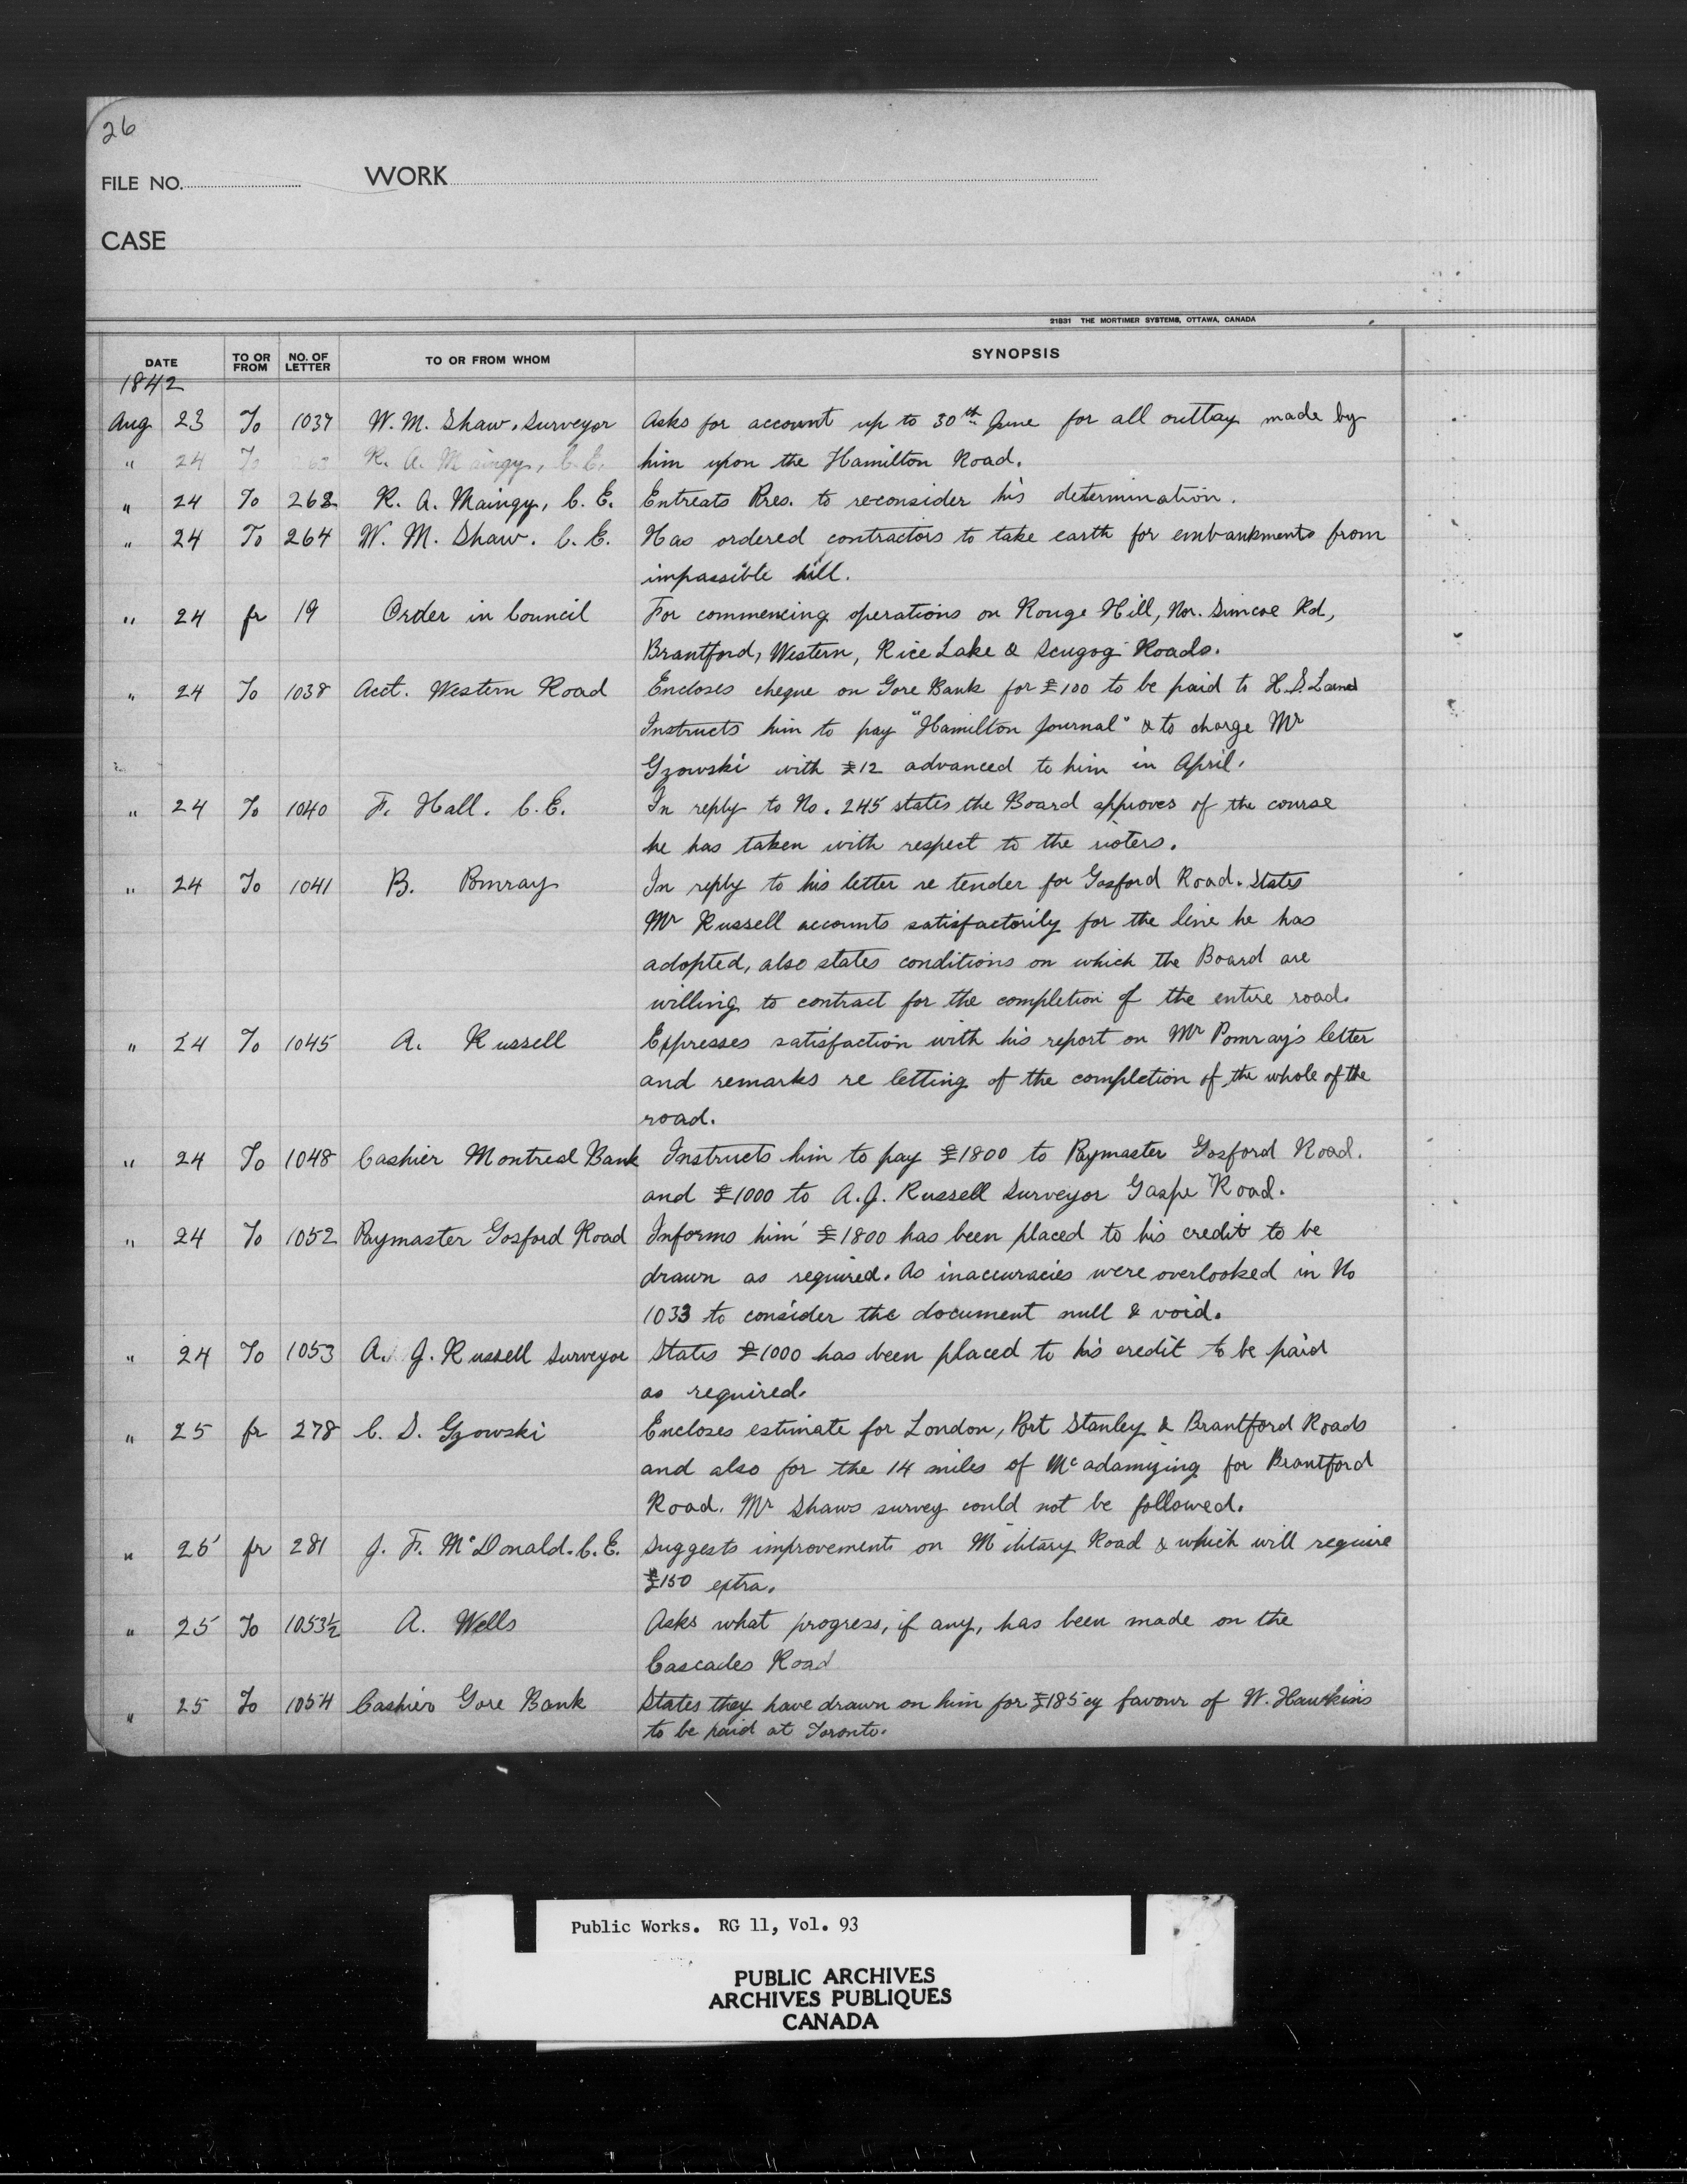 26
FILE NO. WORK
CASE
21831 THE MORTIMER SYSTEMS, OTTAWA, CANADA
DATE TO OR FROM NO. OF LETTER TO OR FROM WHOM SYNOPSIS
1842
Aug. 23 To 1037 W. M. Shaw, Surveyor Asks for account up to 30th June for all outlay made by
" 24 To R. A. Maingy, C. E. him upon the Hamilton Road.
" 24 To 262 R. A. Maingy, C. E. Entreats Pres. to reconsider his determination.
" 24 To 264 W. M. Shaw. C. E. Has ordered contractors to take earth for embankments from
impassible hill.
" 24 fr 19 Order in Council For commencing operations on Rouge Hill, Nor. Simcoe Rd,
Brantford, Western, Rice Lake & Scugog Roads.
" 24 To 1038 Acct. Western Road Encloses cheque on Gore Bank for £100 to be paid to H. S.
Instructs him to pay "Hamilton Journal" & to charge Mr
Gzowski with £12 advanced to him in April.
" 24 To 1040 F. Hall. C. E. In reply to No. 245 states the Board approves of the course
he has taken with respect to the rioters.
" 24 To 1041 B. Pomray In reply to his letter re tender for Gosford Road. States
Mr Russell accounts satisfactorily for the line he has
adopted, also states conditions on which the Board are
willing to contract for the completion of the entire road.
" 24 To 1045 A. Russell Expresses satisfaction with his report on Mr Pomray's letter
and remarks re letting of the completion of the whole of the
road.
" 24 To 1048 Cashier Montreal Bank Instructs him to pay £1800 to Paymaster Gosford Road.
and £1000 to A. J. Russell Surveyor Gaspe Road.
" 24 To 1052 Paymaster Gosford Road Informs him £1800 has been placed to his credit to be
drawn as required. As inaccuracies were overlooked in No
1033 to consider the document null & void.
" 24 To 1053 A. J. Russell Surveyor States £1000 has been placed to his credit to be paid
as required.
" 25 fr 278 C. S. Gzowski Encloses estimate for London, Port Stanley & Brantford Roads
and also for the 14 miles of McAdamizing for Brantford
Road. Mr Shaws survey could not be followed.
" 25 fr 281 J. F. McDonald. C. E. Suggests improvements on Military Road & which will require
£150 extra.
" 25 To 1053½ A. Wells Asks what progress, if any, has been made on the
Cascades Road
" 25 To 1054 Cashier Gore Bank States they have drawn on him for £185 cy favour of W. Hawkins
to be paid at Toronto.
Public Works. RG 11, Vol. 93
PUBLIC ARCHIVES
ARCHIVES PUBLIQUES
CANADA